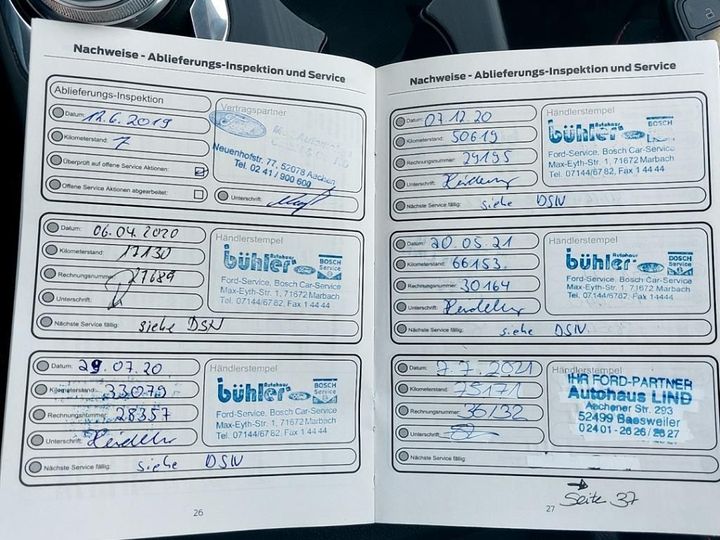 Nachweise - Ablieferungs-Inspektion und Service
Ablieferungs-Inspektion
Datum: 12.6.2019
Kilometerstand: 7
Überprüft auf offene Service Aktionen
Offene Service Aktionen abgearbeitet:
Vertragspartner
Ford
Neuenhofstr. 77, 52078 Aachen
Tel. 02 41 / 900 600
Unterschrift:
Datum: 06.04.2020
Kilometerstand: 17130
Rechnungsnummer: 27689
Unterschrift:
Nächste Service fällig: siehe DSN
Händlerstempel
Autohaus
bühler Ford BOSCH Service
Ford-Service, Bosch Car-Service
Max-Eyth-Str. 1, 71672 Marbach
Tel. 07144/67 82, Fax 1 44 44
Datum: 29.07.20
Kilometerstand: 33079
Rechnungsnummer: 28357
Unterschrift:
Nächste Service fällig: siehe DSN
Händlerstempel
Autohaus
bühler Ford BOSCH Service
Ford-Service, Bosch Car-Service
Max-Eyth-Str. 1, 71672 Marbach
Tel. 07144/67 82, Fax 1 44 44
26
Nachweise - Ablieferungs-Inspektion und Service
Datum: 07.12.20
Kilometerstand: 50619
Rechnungsnummer: 29195
Unterschrift:
Nächste Service fällig: siehe DSN
Händlerstempel
Autohaus
bühler Ford BOSCH Service
Ford-Service, Bosch Car-Service
Max-Eyth-Str. 1, 71672 Marbach
Tel. 07144/67 82, Fax 1 44 44
Datum: 20.05.21
Kilometerstand: 66153
Rechnungsnummer: 30164
Unterschrift:
Nächste Service fällig: siehe DSN
Händlerstempel
Autohaus
bühler Ford BOSCH Service
Ford-Service, Bosch Car-Service
Max-Eyth-Str. 1, 71672 Marbach
Tel. 07144/67 82, Fax 1 44 44
Datum: 7.7.2021
Kilometerstand: 75171
Rechnungsnummer: 36/32
Unterschrift:
Nächste Service fällig:
Händlerstempel
IHR FORD-PARTNER
Autohaus LIND
Aachener Str. 293
52499 Baesweiler
02401-2626/2627
27
→ Seite 37